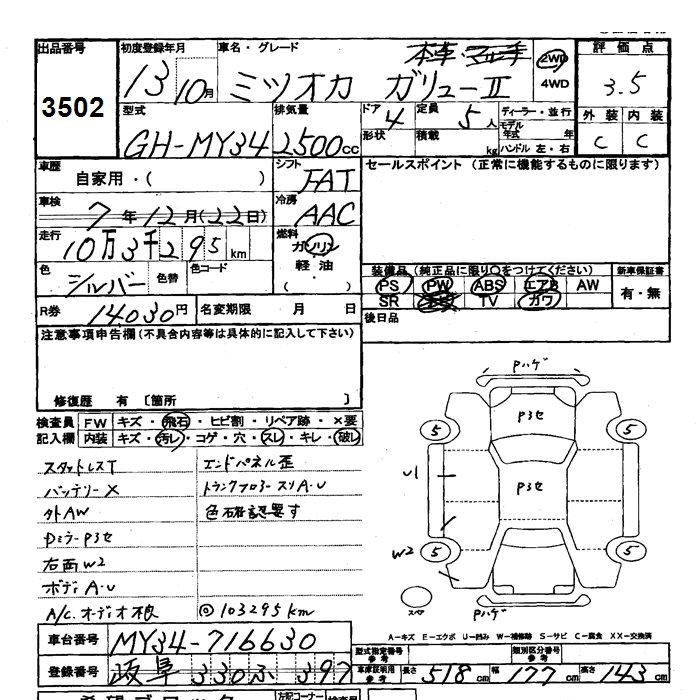 出品番号
3502
初度登録年月
13 10月
車名・グレード
ミツオカ ガリューⅡ
2WD
4WD
評価点
3.5
外装 内装
C C
型式
GH-MY34
排気量
2500cc
ドア
4
形状
定員
5人
積載
kg
ディーラー・並行
モデル
年式 年
ハンドル 左・右
車歴
自家用・( )
シフト
FAT
セールスポイント (正常に機能するものに限ります)
車検
7年12月(22日)
冷房
AAC
走行
10万3千295km
燃料
ガソリン
軽油
( ・ )
色
シルバー
色替
色コード
装備品(純正品に限り○をつけてください)
PS PW ABS エアB AW
SR TV カワ
新車保証書
有・無
R券
14030円
名変期限 月 日
後日品
注意事項申告欄(不具合内容等は具体的に記入して下さい)
修復歴 有 〔箇所 〕
検査員
記入欄
FW キズ・飛石・ヒビ割・リペア跡・×要
内装 キズ・汚レ・コゲ・穴・スレ・キレ・破レ
スタットレスT
バッテリーX
外AW
Dミラー P3セ
右両W2
ボディA・U
A/C.オーディオ
エンドパネル歪
トランクフロアースリA・U
色確認要す
◎103295km
Pハゲ
P3セ
P3セ
5 5
5 5
U1
W2
スペア
Pハゲ
A－キズ E－エクボ U－凹み W－補修跡 S－サビ C－腐食 XX－交換済
車台番号
MY34-716630
登録番号
岐阜 330 ふ 397
型式指定番号
参考
類別区分番号
参考
車庫証明用
参考
長さ 518cm 幅 177cm 高さ 143cm
希望ブロック
左記コーナー
検査員